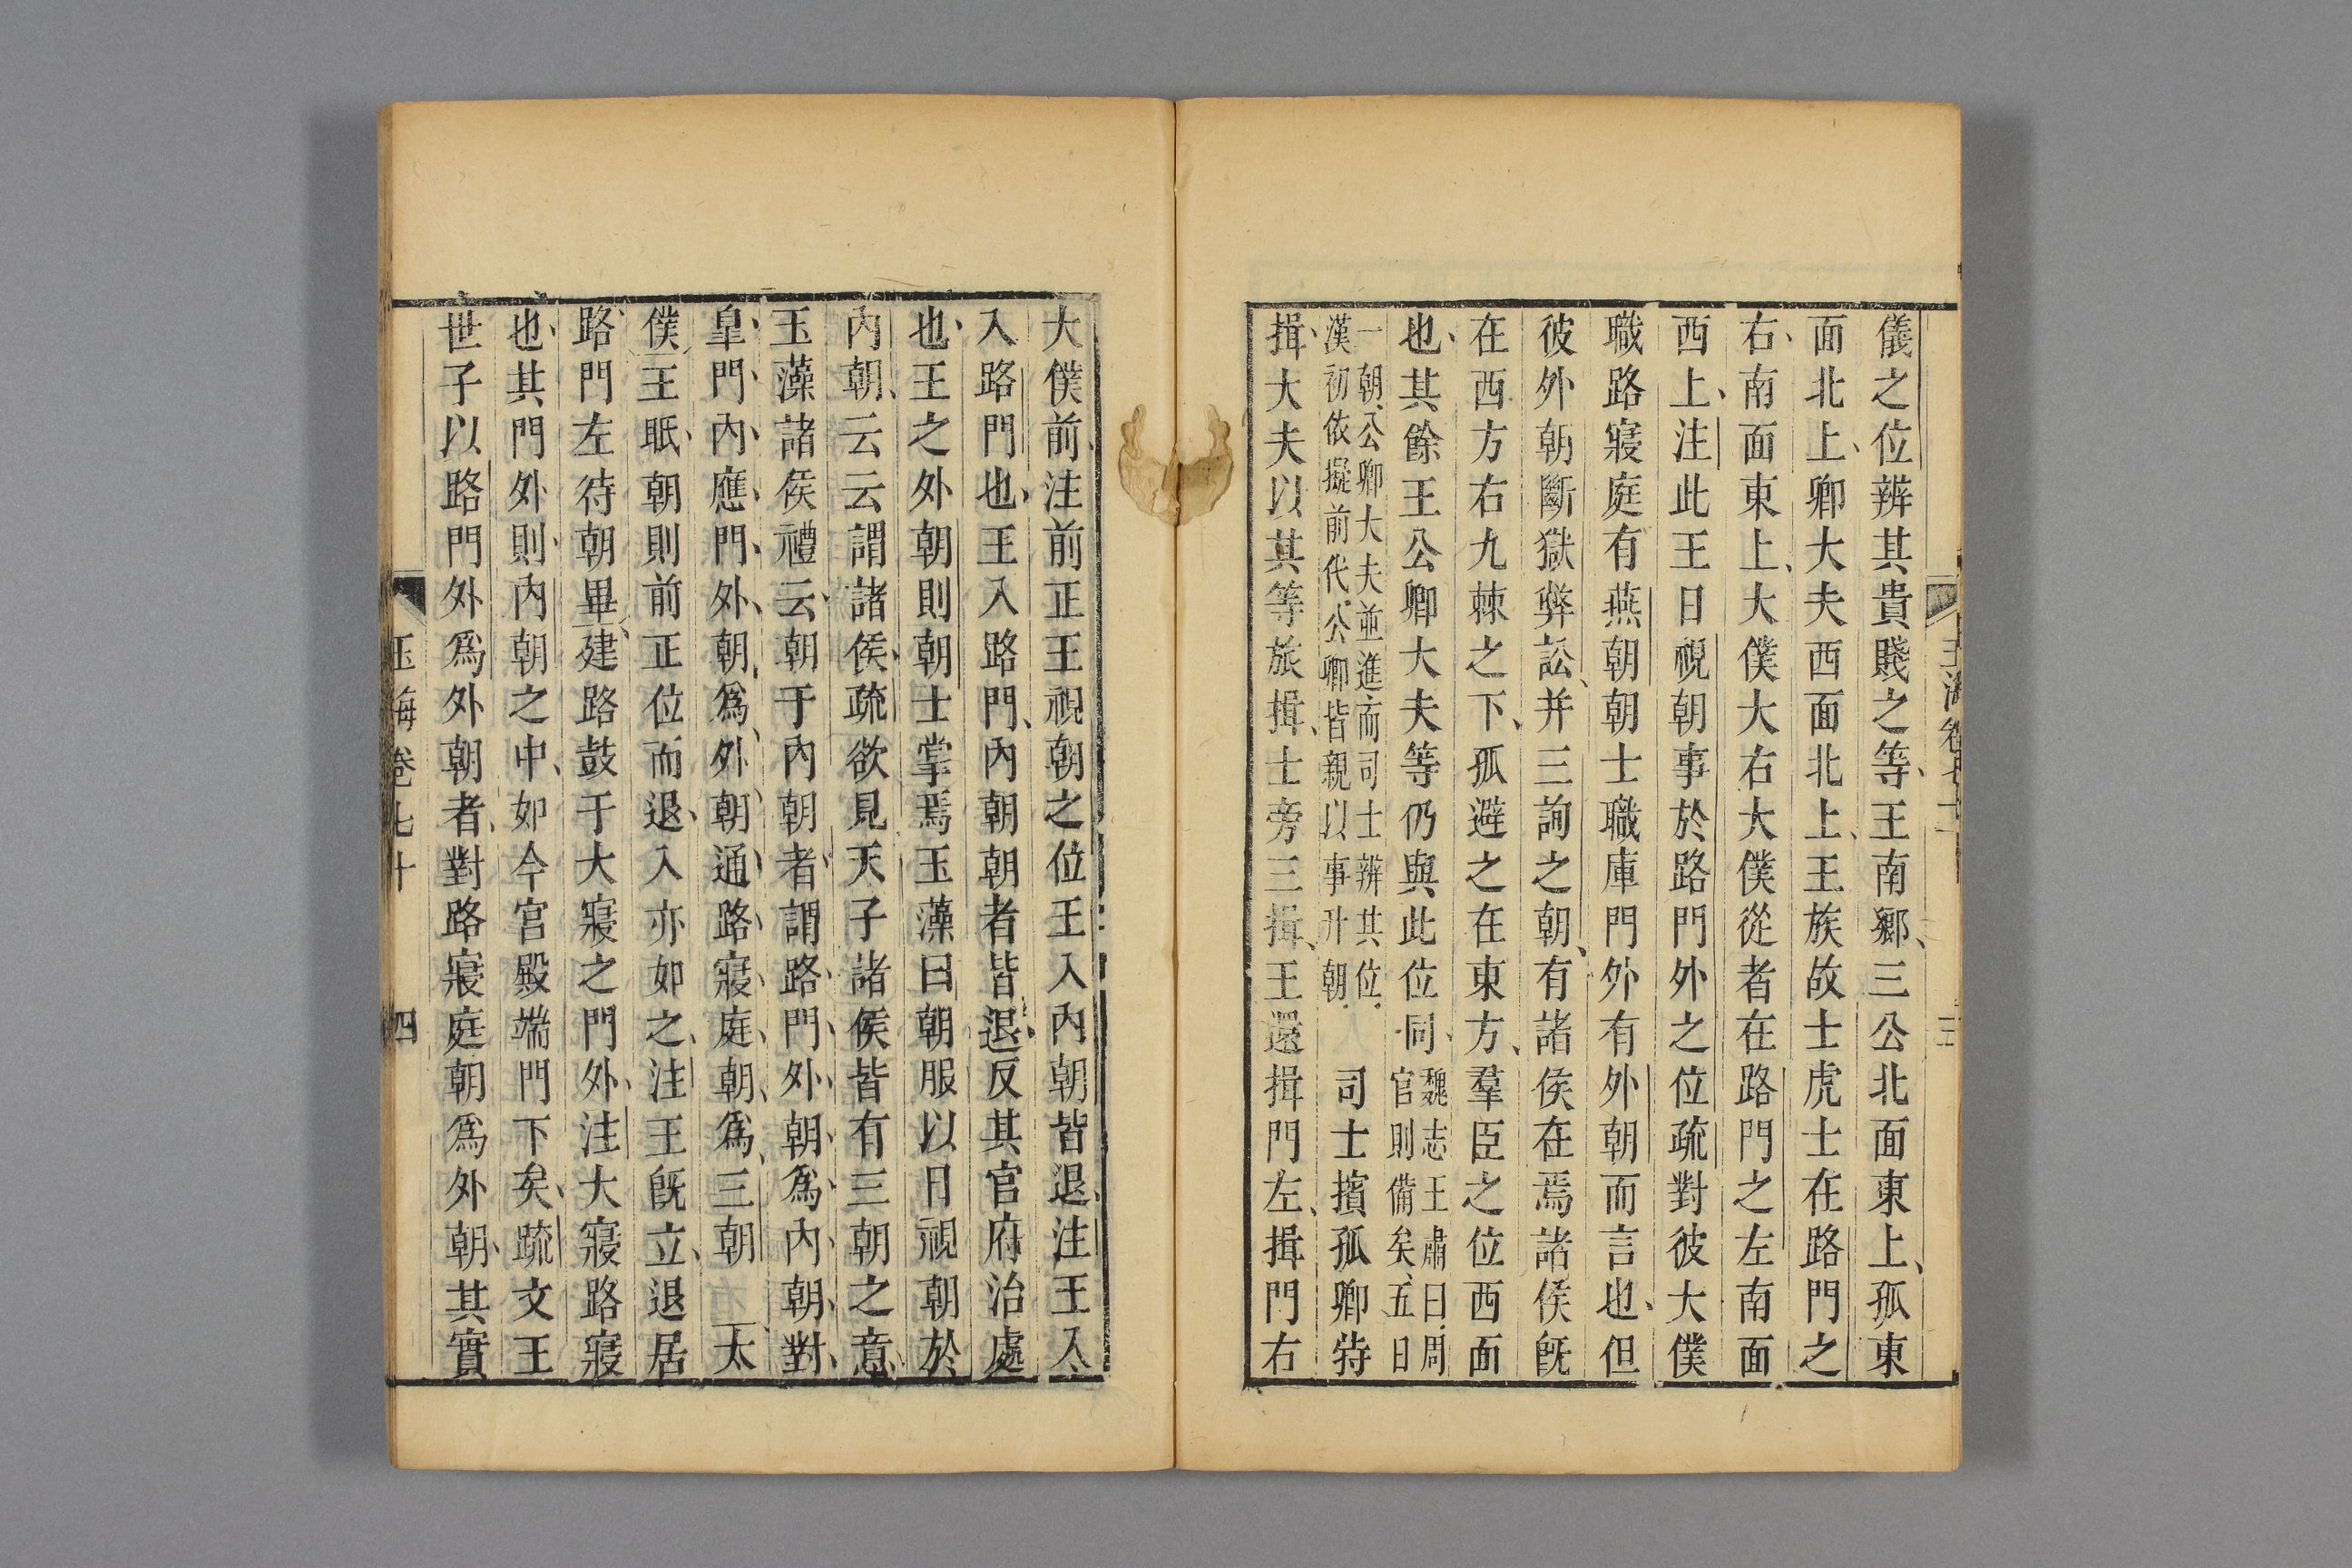 儀之位辨其貴賤之等王南鄉三公北面東上孤東
面北上卿大夫西面北上王族故士虎士在路門之
右南面東上大僕大右大僕從者在路門之左南面
西上注此王日視朝事於路門外之位疏對彼大僕
職路寢庭有燕朝朝士職庫門外有外朝而言也但
彼外朝斷獄弊訟并三詢之朝有諸侯在焉諸侯旣
在西方右九棘之下孤避之在東方羣臣之位西面
也其餘王公卿大夫等仍與此位同
魏志王肅曰周
官則備矣五日
一朝公卿大夫並進而司士辨其位
漢初依擬前代公卿皆親以事升朝
司士擯孤卿特
揖大夫以其等旅揖士旁三揖王還揖門左揖門右
大僕前注前正王視朝之位王入內朝皆退注王入
入路門也王入路門內朝朝者皆退反其官府治處
也王之外朝則朝士掌焉玉藻曰朝服以日視朝於
內朝云云謂諸侯疏欲見天子諸侯皆有三朝之意
玉藻諸侯禮云朝于內朝者謂路門外朝爲內朝對
皐門內應門外朝爲外朝通路寢庭朝爲三朝 太
僕王眡朝則前正位而退入亦如之注王旣立退居
路門左待朝畢建路鼓于大寢之門外注大寢路寢
也其門外則內朝之中如今宮殿端門下矣疏文王
世子以路門外爲外朝者對路寢庭朝爲外朝其實
玉海卷七十
四